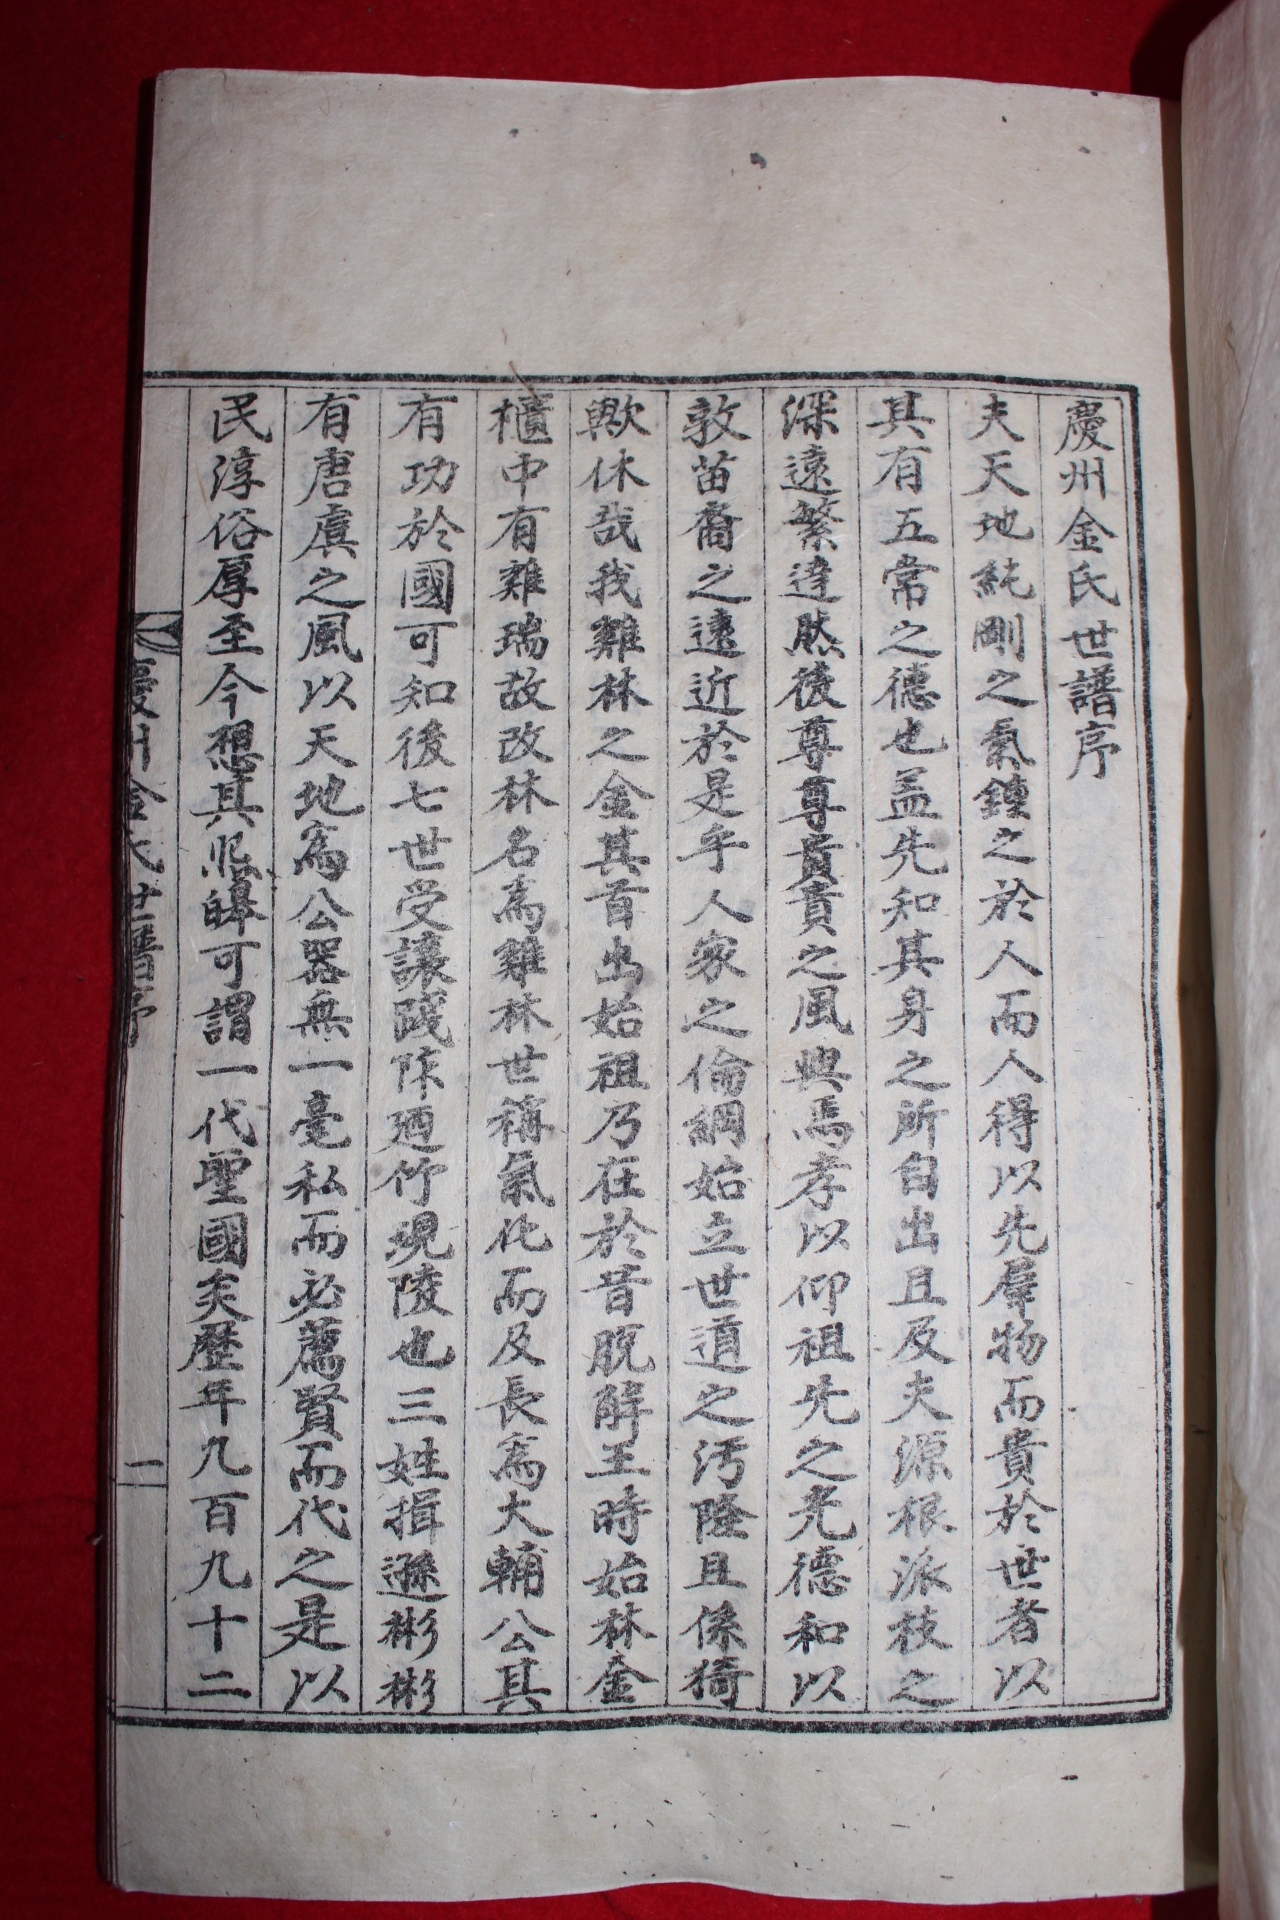 慶州金氏世譜序
夫天地純剛之氣鍾之於人而人得以先羣物而貴於世者以
其有五常之德也盖先知其身之所自出且及夫源根派枝之
深遠繁達然後尊尊貴貴之風興焉孝以仰祖先之光德和以
敦苗裔之遠近於是乎人家之倫綱始立世道之汚隆且係猗
歟休哉我雞林之金其首出始祖乃在於昔脫解王時始林金
櫃中有雞瑞故改林名爲雞林世稱氣化而及長爲大輔公其
有功於國可知後七世受讓踐阼廼竹現陵也三姓揖遜彬彬
有唐虞之風以天地爲公器無一毫私而必薦賢而代之是以
民淳俗厚至今想其熙皥可謂一代聖國矣歷年九百九十二
慶州金氏世譜序
一